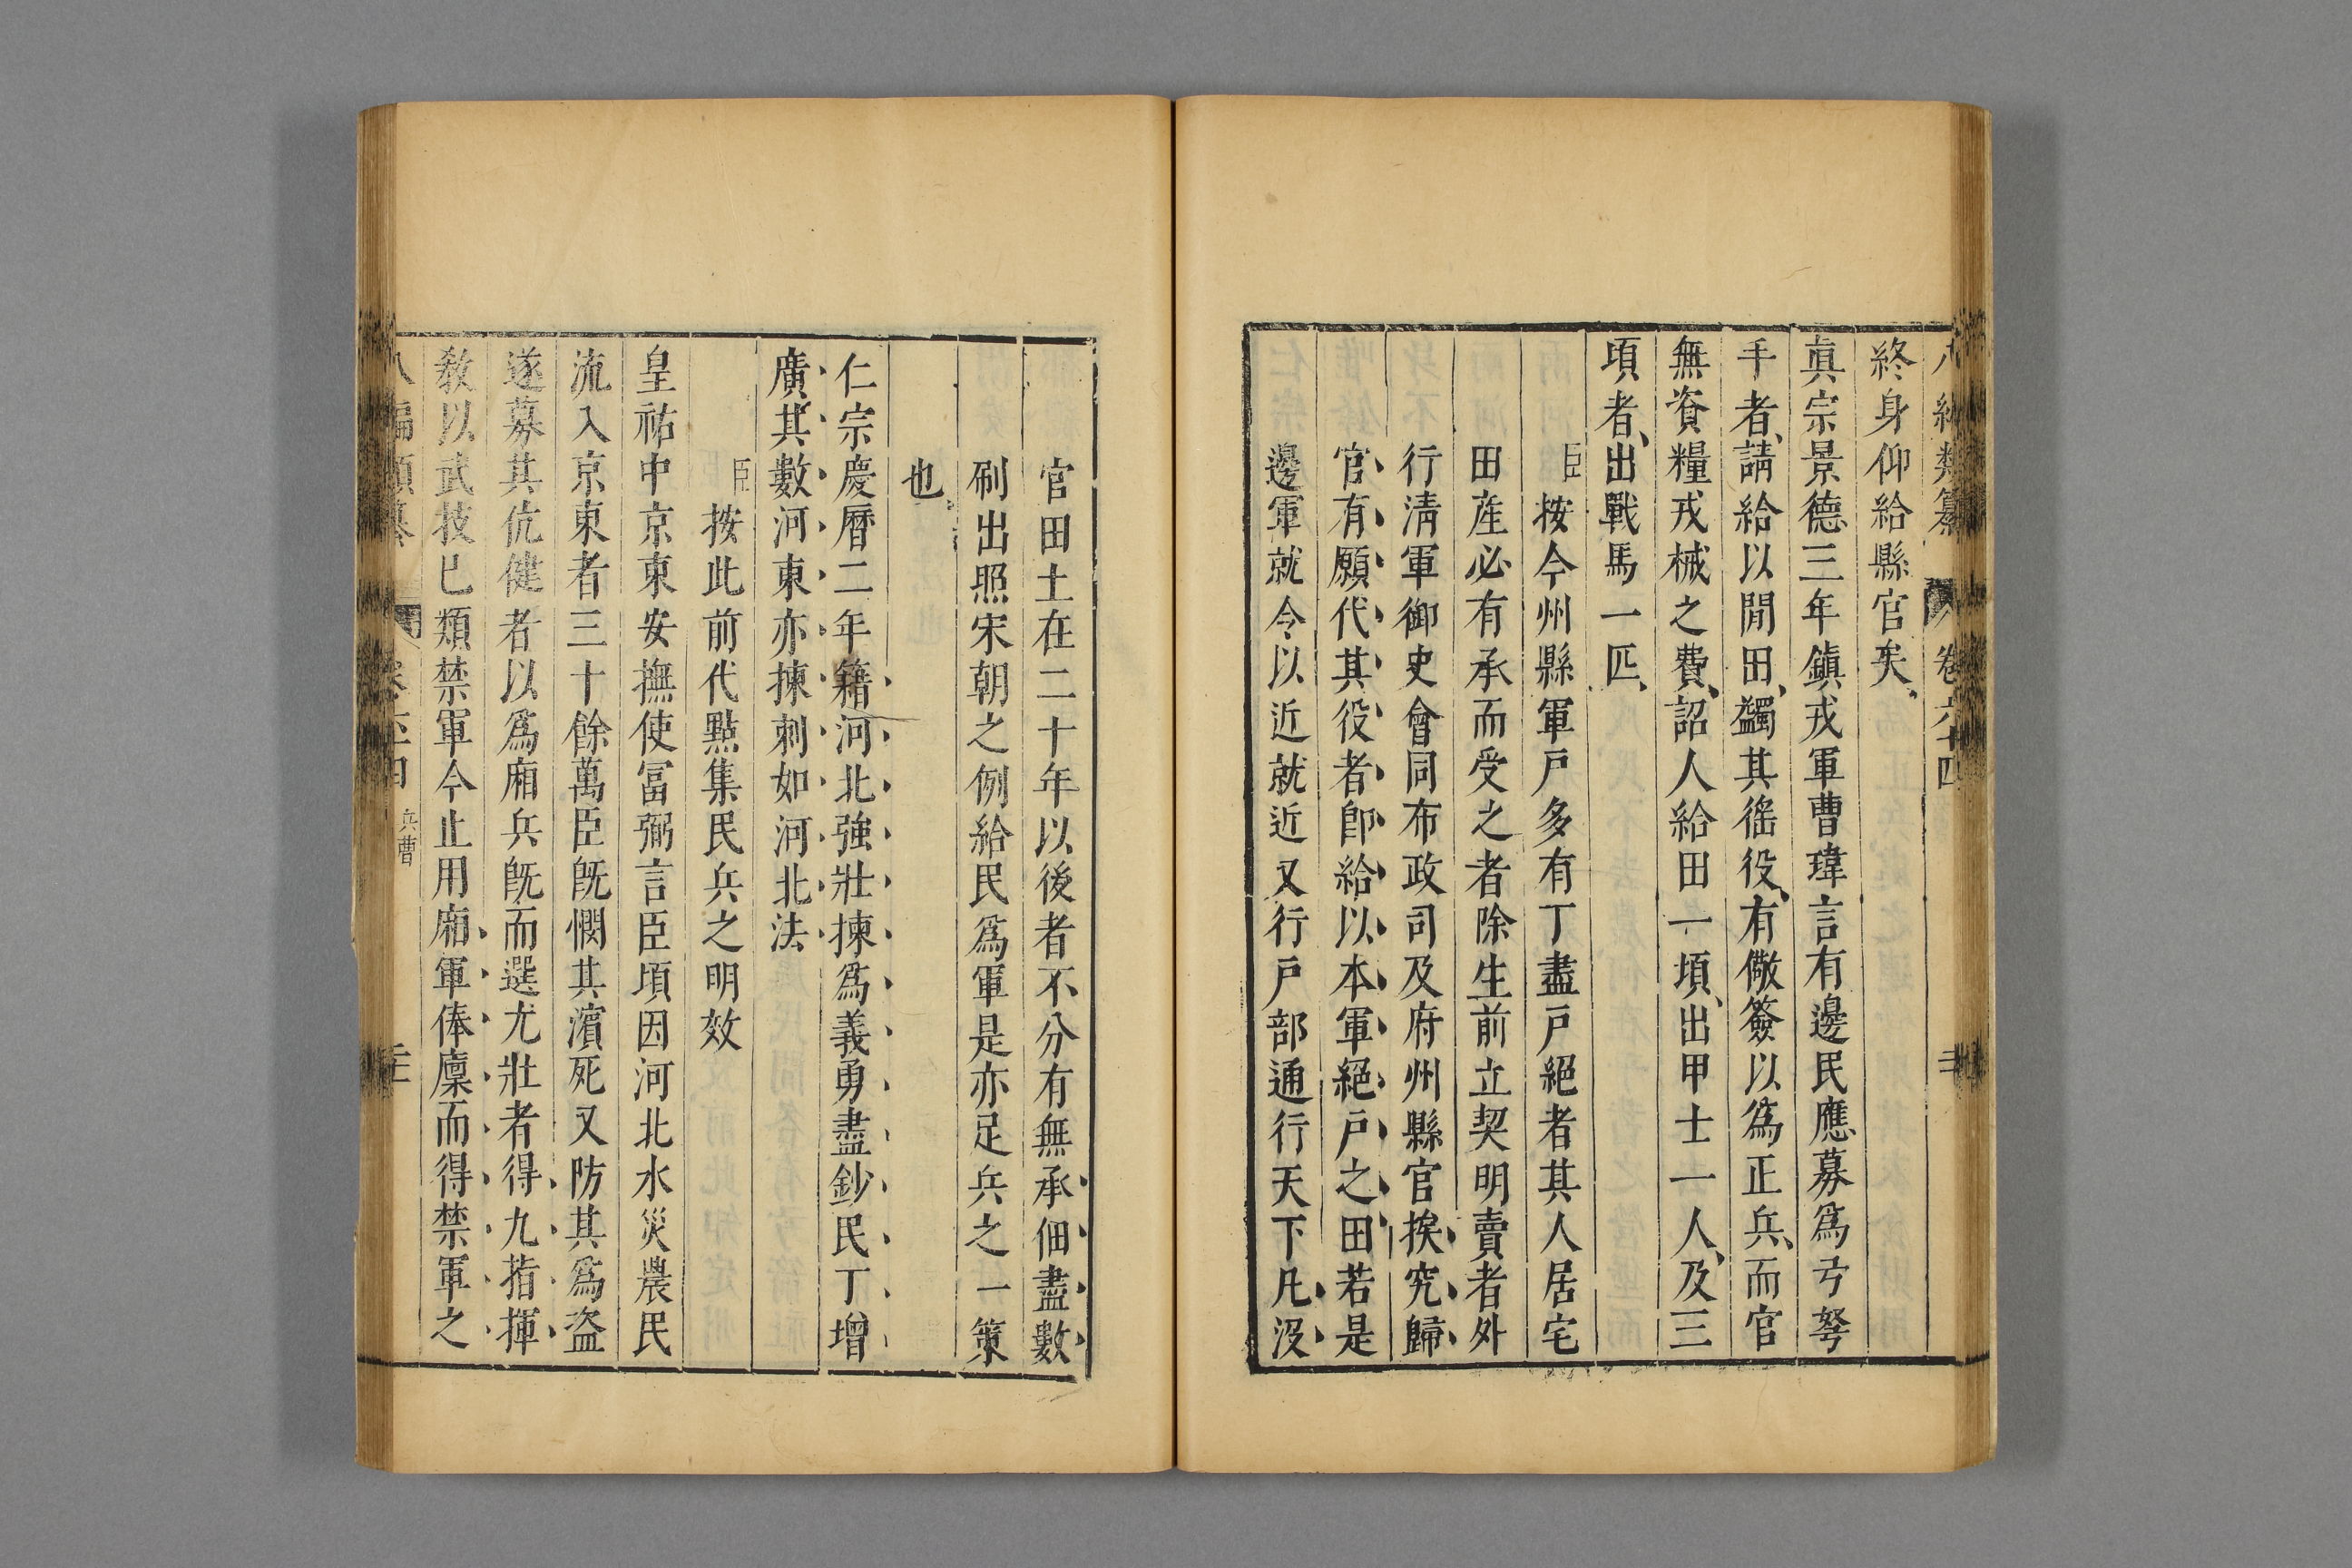 終身仰給縣官矣
真宗景德三年鎮戎軍曹瑋言有邊民應募爲弓弩
手者請給以閒田蠲其徭役有儆簽以爲正兵而官
無資糧戎械之費詔人給田一頃出甲士一人及三
頃者出戰馬一匹
臣按今州縣軍戶多有丁盡戶絕者其人居宅
田產必有承而受之者除生前立契明賣者外
行清軍御史會同布政司及府州縣官挨究歸
官有願代其役者卽給以本軍絕戶之田若是
邊軍就令以近就近又行戶部通行天下凡沒
官田土在二十年以後者不分有無承佃盡數
刷出照宋朝之例給民爲軍是亦足兵之一策
也
仁宗慶曆二年籍河北強壯揀爲義勇盡鈔民丁增
廣其數河東亦揀刺如河北法
臣按此前代點集民兵之明效
皇祐中京東安撫使富弼言臣頃因河北水災農民
流入京東者三十餘萬臣旣憫其濱死又防其爲盜
遂募其伉健者以爲廂兵旣而選尤壯者得九指揮
敎以武技已類禁軍今止用廂軍俸廩而得禁軍之
八編類纂 卷六十四 兵曹